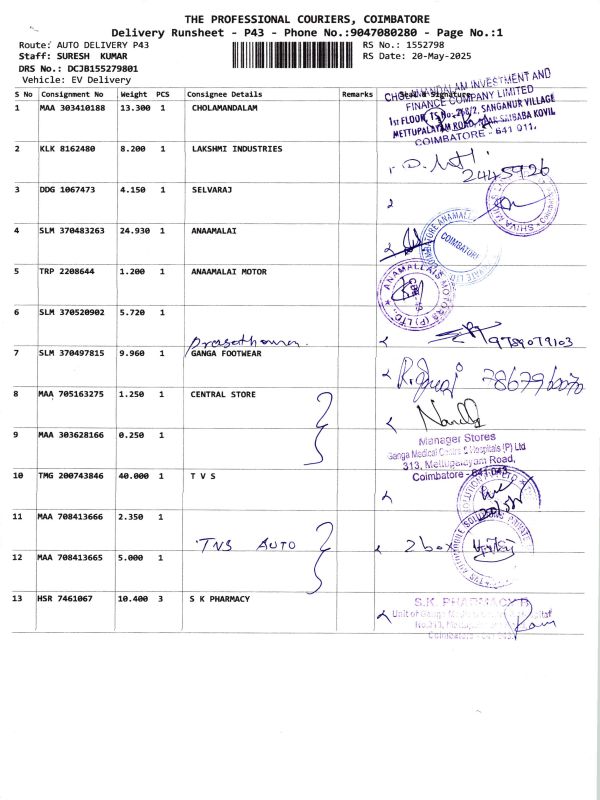 THE PROFESSIONAL COURIERS, COIMBATORE
Delivery Runsheet - P43 - Phone No.:9047080280 - Page No.:1
Route: AUTO DELIVERY P43 RS No.: 1552798
Staff: SURESH KUMAR RS Date: 20-May-2025
DRS No.: DCJB155279801
Vehicle: EV Delivery
S No Consignment No Weight PCS Consignee Details Remarks
1 MAA 303410188 13.300 1 CHOLAMANDALAM
CHOLAMANDALAM INVESTMENT AND
FINANCE COMPANY LIMITED
1st FLOOR, TS No. 268/2, SANGANUR VILLAGE
METTUPALAYAM ROAD, NEAR SAIBABA KOVIL
COIMBATORE - 641 011.
2 KLK 8162480 8.200 1 LAKSHMI INDUSTRIES
2445926
3 DDG 1067473 4.150 1 SELVARAJ
4 SLM 370483263 24.930 1 ANAAMALAI
COIMBATORE
5 TRP 2208644 1.200 1 ANAAMALAI MOTOR
ANAMALLAIS MOTORS (P) LTD.,
6 SLM 370520902 5.720 1
9789079103
7 SLM 370497815 9.960 1 GANGA FOOTWEAR
8 MAA 705163275 1.250 1 CENTRAL STORE
9 MAA 303628166 0.250 1
Manager Stores
Ganga Medical Centre & Hospitals (P) Ltd
313, Mettupalayam Road,
Coimbatore - 641 043.
10 TMG 200743846 40.000 1 T V S
11 MAA 708413666 2.350 1
TNS AUTO 2 box
12 MAA 708413665 5.000 1
13 HSR 7461067 10.400 3 S K PHARMACY
S.K. PHARMACY
Unit of Ganga
Coimbatore - 641 043.